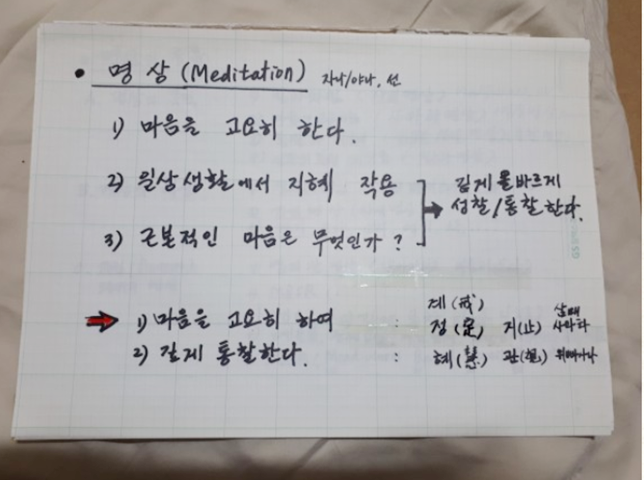 • 명상 (Meditation) 자나/야나, 선
1) 마음을 고요히 한다.
2) 일상생활에서 지혜 작용
3) 근본적인 마음은 무엇인가?
깊게 올바르게
성찰/통찰한다.
계(戒)
➡ 1) 마음을 고요히 하여 : 정(定) 지(止) 사마타
2) 깊게 통찰한다. : 혜(慧) 관(觀)